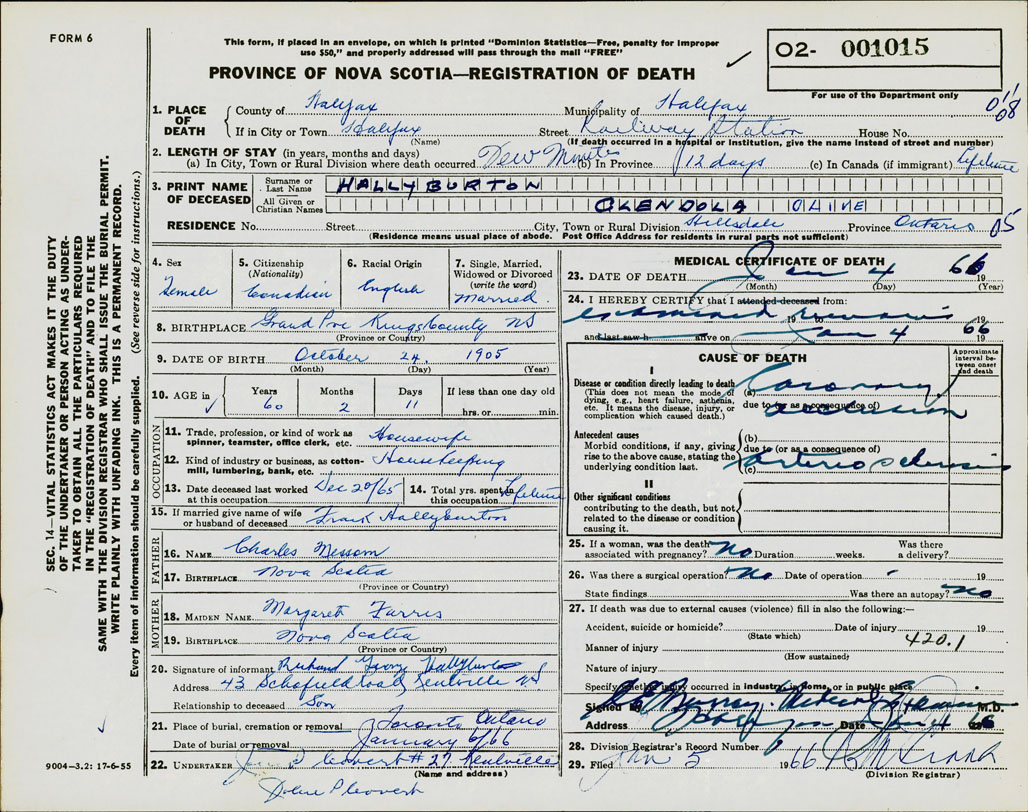 FORM 6
This form, if placed in an envelope, on which is printed "Dominion Statistics—Free, penalty for improper
use $50," and properly addressed will pass through the mail "FREE"
O2- 001015
For use of the Department only
PROVINCE OF NOVA SCOTIA—REGISTRATION OF DEATH
SEC. 14—VITAL STATISTICS ACT MAKES IT THE DUTY
OF THE UNDERTAKER OR PERSON ACTING AS UNDER-
TAKER TO OBTAIN ALL THE PARTICULARS REQUIRED
IN THE "REGISTRATION OF DEATH" AND TO FILE THE
SAME WITH THE DIVISION REGISTRAR WHO SHALL ISSUE THE BURIAL PERMIT.
WRITE PLAINLY WITH UNFADING INK. THIS IS A PERMANENT RECORD.
Every item of information should be carefully supplied. (See reverse side for instructions.)
1. PLACE OF DEATH County of Halifax Municipality of Halifax
If in City or Town Halifax Street Railway Station House No.
(Name) (If death occurred in a hospital or institution, give the name instead of street and number)
2. LENGTH OF STAY (in years, months and days)
(a) In City, Town or Rural Division where death occurred Few Minutes (b) In Province 12 days (c) In Canada (if immigrant) Lifetime
3. PRINT NAME OF DECEASED Surname or Last Name HALLYBURTON
All Given or Christian Names GLENDOLA OLIVE
RESIDENCE No. Street City, Town or Rural Division Hillsdale Province Ontario 05
(Residence means usual place of abode. Post Office Address for residents in rural parts not sufficient)
4. Sex Female
5. Citizenship (Nationality) Canadian
6. Racial Origin English
7. Single, Married, Widowed or Divorced (write the word) Married
8. BIRTHPLACE Grand Pre Kings County NS
(Province or Country)
9. DATE OF BIRTH October 24, 1905
(Month) (Day) (Year)
10. AGE in Years 60 Months 2 Days 11 If less than one day old hrs. or min.
OCCUPATION
11. Trade, profession, or kind of work as spinner, teamster, office clerk, etc. Housewife
12. Kind of industry or business, as cotton-mill, lumbering, bank, etc. Housekeeping
13. Date deceased last worked at this occupation Dec 20/65
14. Total yrs. spent in this occupation Lifetime
15. If married give name of wife or husband of deceased Frank Hallyburton
FATHER
16. NAME Charles Messom
17. BIRTHPLACE Nova Scotia
(Province or Country)
MOTHER
18. MAIDEN NAME Margaret Farris
19. BIRTHPLACE Nova Scotia
(Province or Country)
20. Signature of informant Hallyburton
Address 43 Schofield Road, Kentville NS
Relationship to deceased Son
21. Place of burial, cremation or removal Toronto Ontario
Date of burial or removal January 6/66
22. UNDERTAKER #27 Kentville
(Name and address)
9004-3.2: 17-6-55
MEDICAL CERTIFICATE OF DEATH
23. DATE OF DEATH Jan 4 1966
(Month) (Day) (Year)
24. I HEREBY CERTIFY that I attended deceased from:
examined remains 19 19
and last saw h alive on Jan 4 1966
CAUSE OF DEATH
Approximate interval between onset and death
I
Disease or condition directly leading to death
(This does not mean the mode of dying, e.g., heart failure, asthenia, etc. It means the disease, injury, or complication which caused death.)
(a) Coronary
due to (or as a consequence of) occlusion
Antecedent causes
Morbid conditions, if any, giving rise to the above cause, stating the underlying condition last.
(b)
due to (or as a consequence of)
(c) arterio sclerosis
II
Other significant conditions
contributing to the death, but not related to the disease or condition causing it.
25. If a woman, was the death associated with pregnancy? No Duration weeks. Was there a delivery?
26. Was there a surgical operation? No Date of operation 19
State findings Was there an autopsy? No
27. If death was due to external causes (violence) fill in also the following:—
Accident, suicide or homicide? Date of injury 19
(State which)
Manner of injury 420.1
(How sustained)
Nature of injury
Specify whether injury occurred in industry, in home, or in public place
Signed Murray Medical Examiner M.D.
Address Date Jan 4 1966
28. Division Registrar's Record Number 6
29. Filed Jan 5 1966
(Division Registrar)